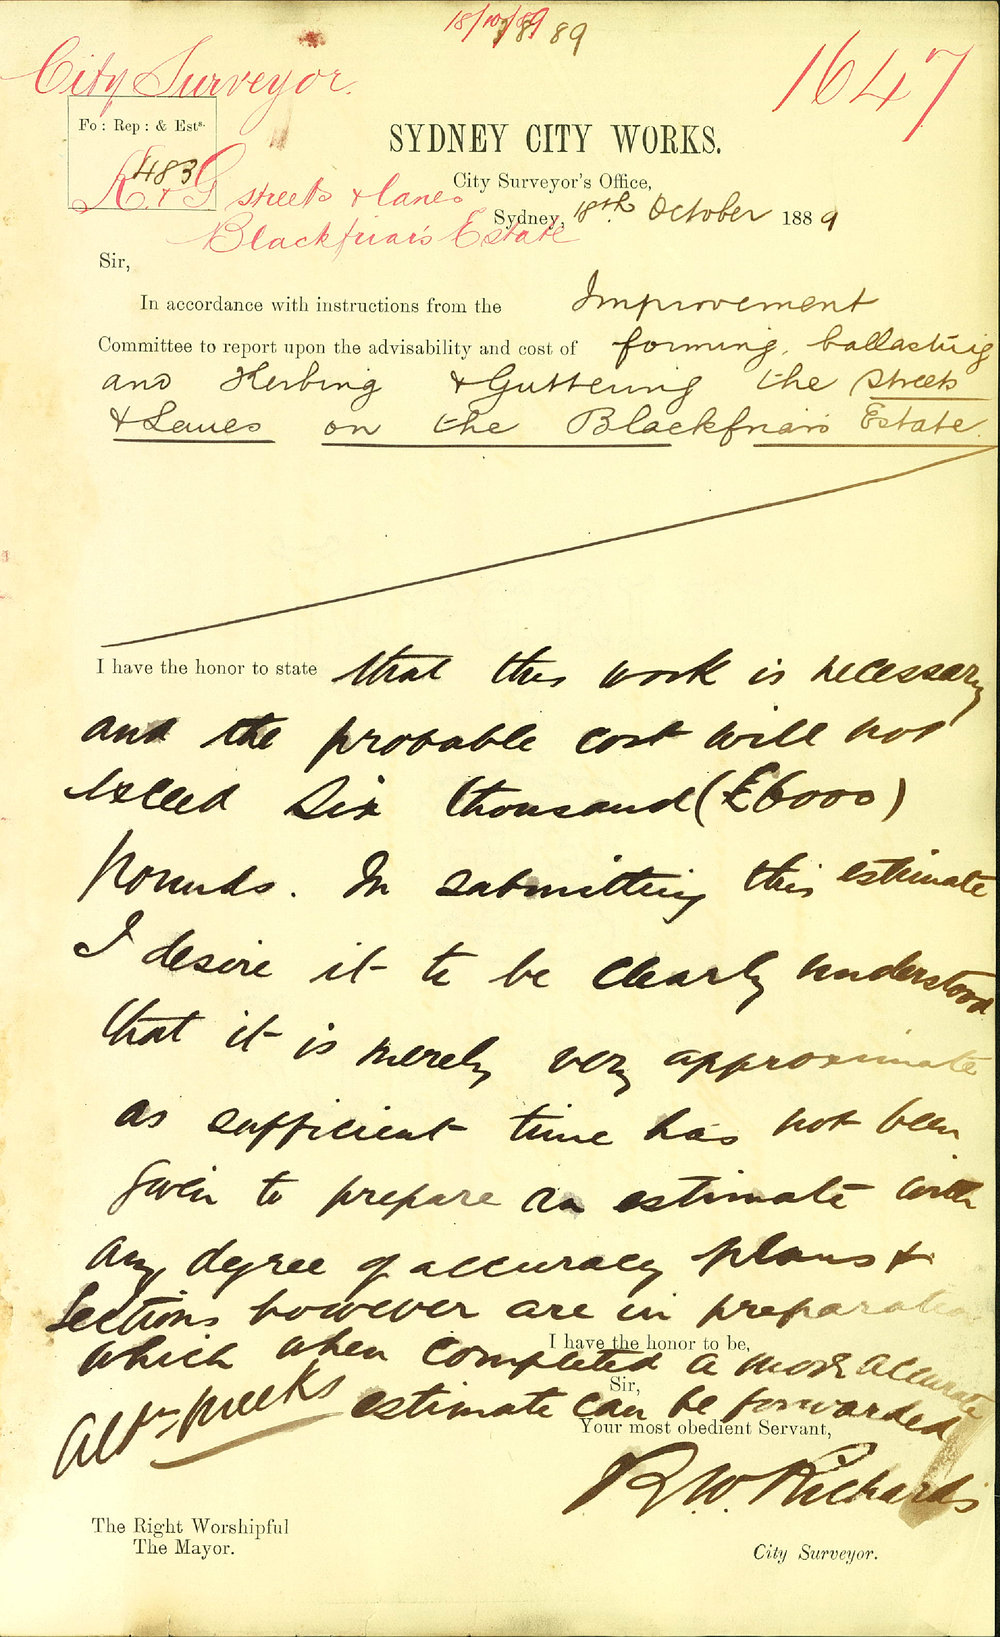 18/10/89
89
City Surveyor.
1647
Fo: Rep: & Ests.
483
SYDNEY CITY WORKS.
City Surveyor's Office,
K. & G streets & lanes
Blackfriar's Estate
Sydney, 18th October 1889
Sir,
In accordance with instructions from the Improvement
Committee to report upon the advisability and cost of forming, ballasting
and Kerbing & Guttering the streets
& Lanes on the Blackfriars Estate
I have the honor to state that this work is necessary
and the probable cost will not
exceed Six thousand (£6000)
pounds. In submitting this estimate
I desire it to be clearly understood
that it is merely very approximate
as sufficient time has not been
given to prepare an estimate with
any degree of accuracy plans &
Sections however are in preparation
which when completed a more accurate
estimate can be forwarded
I have the honor to be,
Sir,
Your most obedient Servant,
R. W. Richards
City Surveyor.
The Right Worshipful
The Mayor.